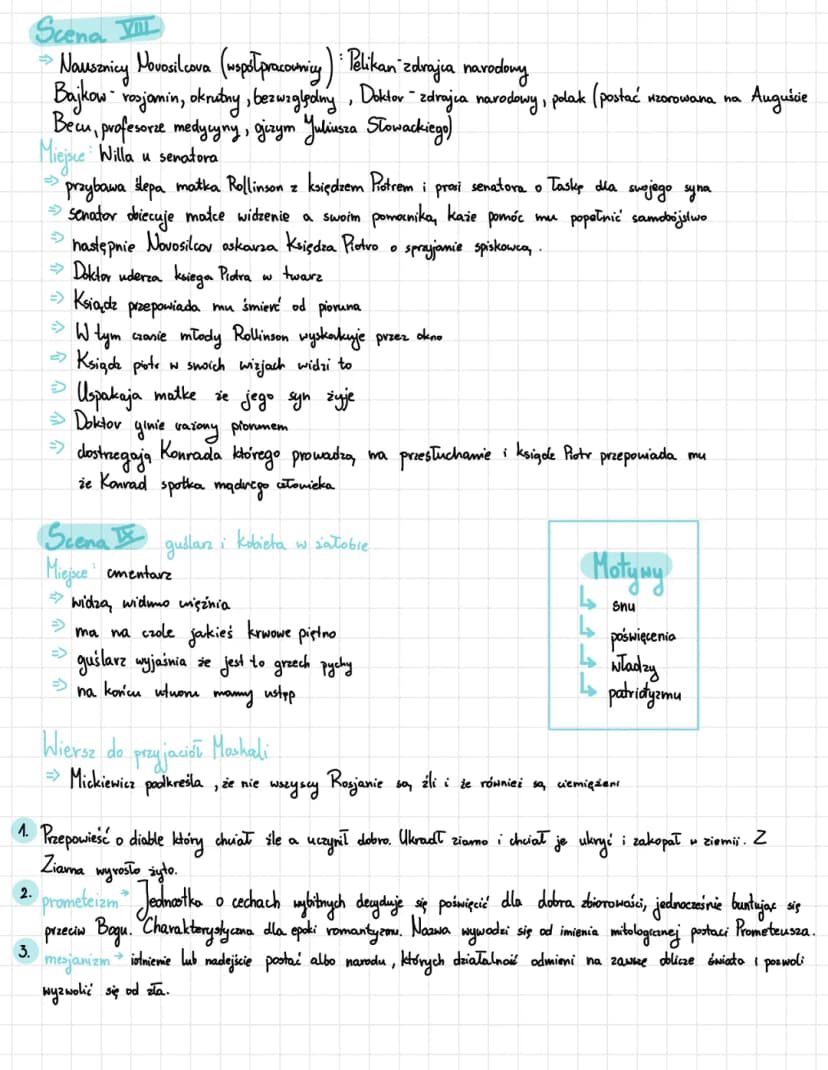 Scena VIII
⇒ Nausznicy Novosilcova (współpracownicy): Pelikan - zdrajca narodowy
Bajkow - rosjanin, okrutny, bezwzględny, Doktor - zdrajca narodowy, polak (postać wzorowana na Auguście
Becu, profesorze medycyny, ojczym Juliusza Słowackiego)
Miejsce: Willa u senatora
⇒ przybywa ślepa matka Rollinson z księdzem Piotrem i prosi senatora o łaskę dla swojego syna
⇒ senator obiecuje matce widzenie a swoim pomocniką, każe pomóc mu popełnić samobójstwo
⇒ następnie Novosilcov oskarża Księdza Piotra o sprzyjanie spiskowcą.
⇒ Doktor uderza księga Piotra w twarz
⇒ Ksiądz przepowiada mu śmierć od pioruna
⇒ W tym czasie młody Rollinson wyskakuje przez okno
⇒ Ksiądz piotr w swoich wizjach widzi to
⇒ Uspakaja matke że jego syn żyje
⇒ Doktor ginie rażony piorunem
⇒ dostrzegają Konrada którego prowadzą na przesłuchanie i ksiądz Piotr przepowiada mu
że Konrad spotka mądrego człowieka
Scena IX guślarz i kobieta w żałobie
Miejsce: cmentarz
⇒ widzą widmo więźnia
⇒ ma na czole jakieś krwowe piętno
⇒ guślarz wyjaśnia że jest to grzech pychy
⇒ na końcu utworu mamy ustęp
Motywy
↳ snu
↳ poświęcenia
↳ władzy
↳ patriotyzmu
Wiersz do przyjaciół Moskali
⇒ Mickiewicz podkreśla, że nie wszyscy Rosjanie są źli i że również są ciemiężeni
1. Przepowieść o diable który chciał źle a uczynił dobro. Ukradł ziarno i chciał je ukryć i zakopał w ziemii. Z
Ziarna wyrosło żyto.
2. prometeizm → Jednostka o cechach wybitnych decyduje się poświęcić dla dobra zbiorowości, jednocześnie buntując się
przeciw Bogu. Charakterystyczna dla epoki romantyzmu. Nazwa wywodzi się od imienia mitologicznej postaci Prometeusza.
3. mesjanizm → istnienie lub nadejście postać albo narodu, których działalność odmieni na zawsze oblicze świata i pozwoli
wyzwolić się od zła.